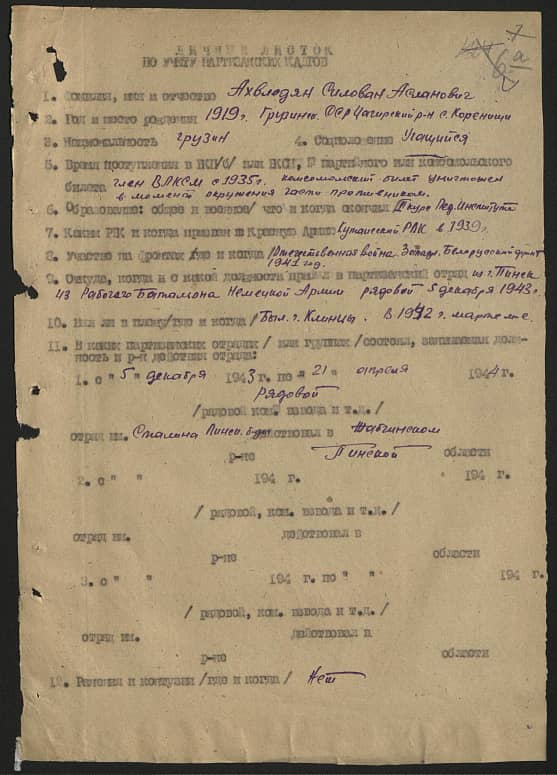 7
а
ЛИЧНЫЙ ЛИСТОК
ПО УЧЕТУ ПАРТИЗАНСКИХ КАДРОВ
1. Фамилия, имя и отчество Ахвледян Силован Асланович
2. Год и место рождения 1919г. Грузинс. ССР Цагирский р-н с. Коренищи
3. Национальность грузин 4. Соцположение Учащийся
5. Время поступления в ВКП/б/ или ВКСМ, № партийного или комсомольского
билета член ВЛКСМ с 1935г. комсомольский билет уничтожен
в момент окружения части противником.
6. Образование: общее и военное/ что и когда окончил II курс Пед. Института
7. Каким РВК и когда призван в Красную Армию Кутаисский РВК в 1939г.
8. Участие на фронтах где и когда /Отечественная война Западн. Белорусский фронт
1941 год.
9. Откуда, когда и с какой должности прибыл в партизанский отряд из г. Пинск
из Рабочего Батальона Немецкой Армии рядовой 5 декабря 1943г.
10. Был ли в плену/где и когда/ Был. г. Клинцы. в 1942 г. марте м-це
11. В каких партизанских отрядах / или группах /состоял, занимаемая долж-
ность и р-н действия отряда:
1. с " 5 " декабря 1943 г. по " 21 " апреля 1944 г.
рядовой
/рядовой, ком. взвода и т.д./
отряд им. Сталина Пинск. б-ды действовал в Жабчинском
р-не Пинской области
2. с " " 194 г. 194 г.
/ рядовой, ком. взвода и т.д./
отряд им. действовал в
р-не области
3. с " " 194 г. по " " 194 г.
/ рядовой, ком. взвода и т.д./
отряд им. действовал в
р-не области
12. Ранения и контузии /где и когда/ Нет